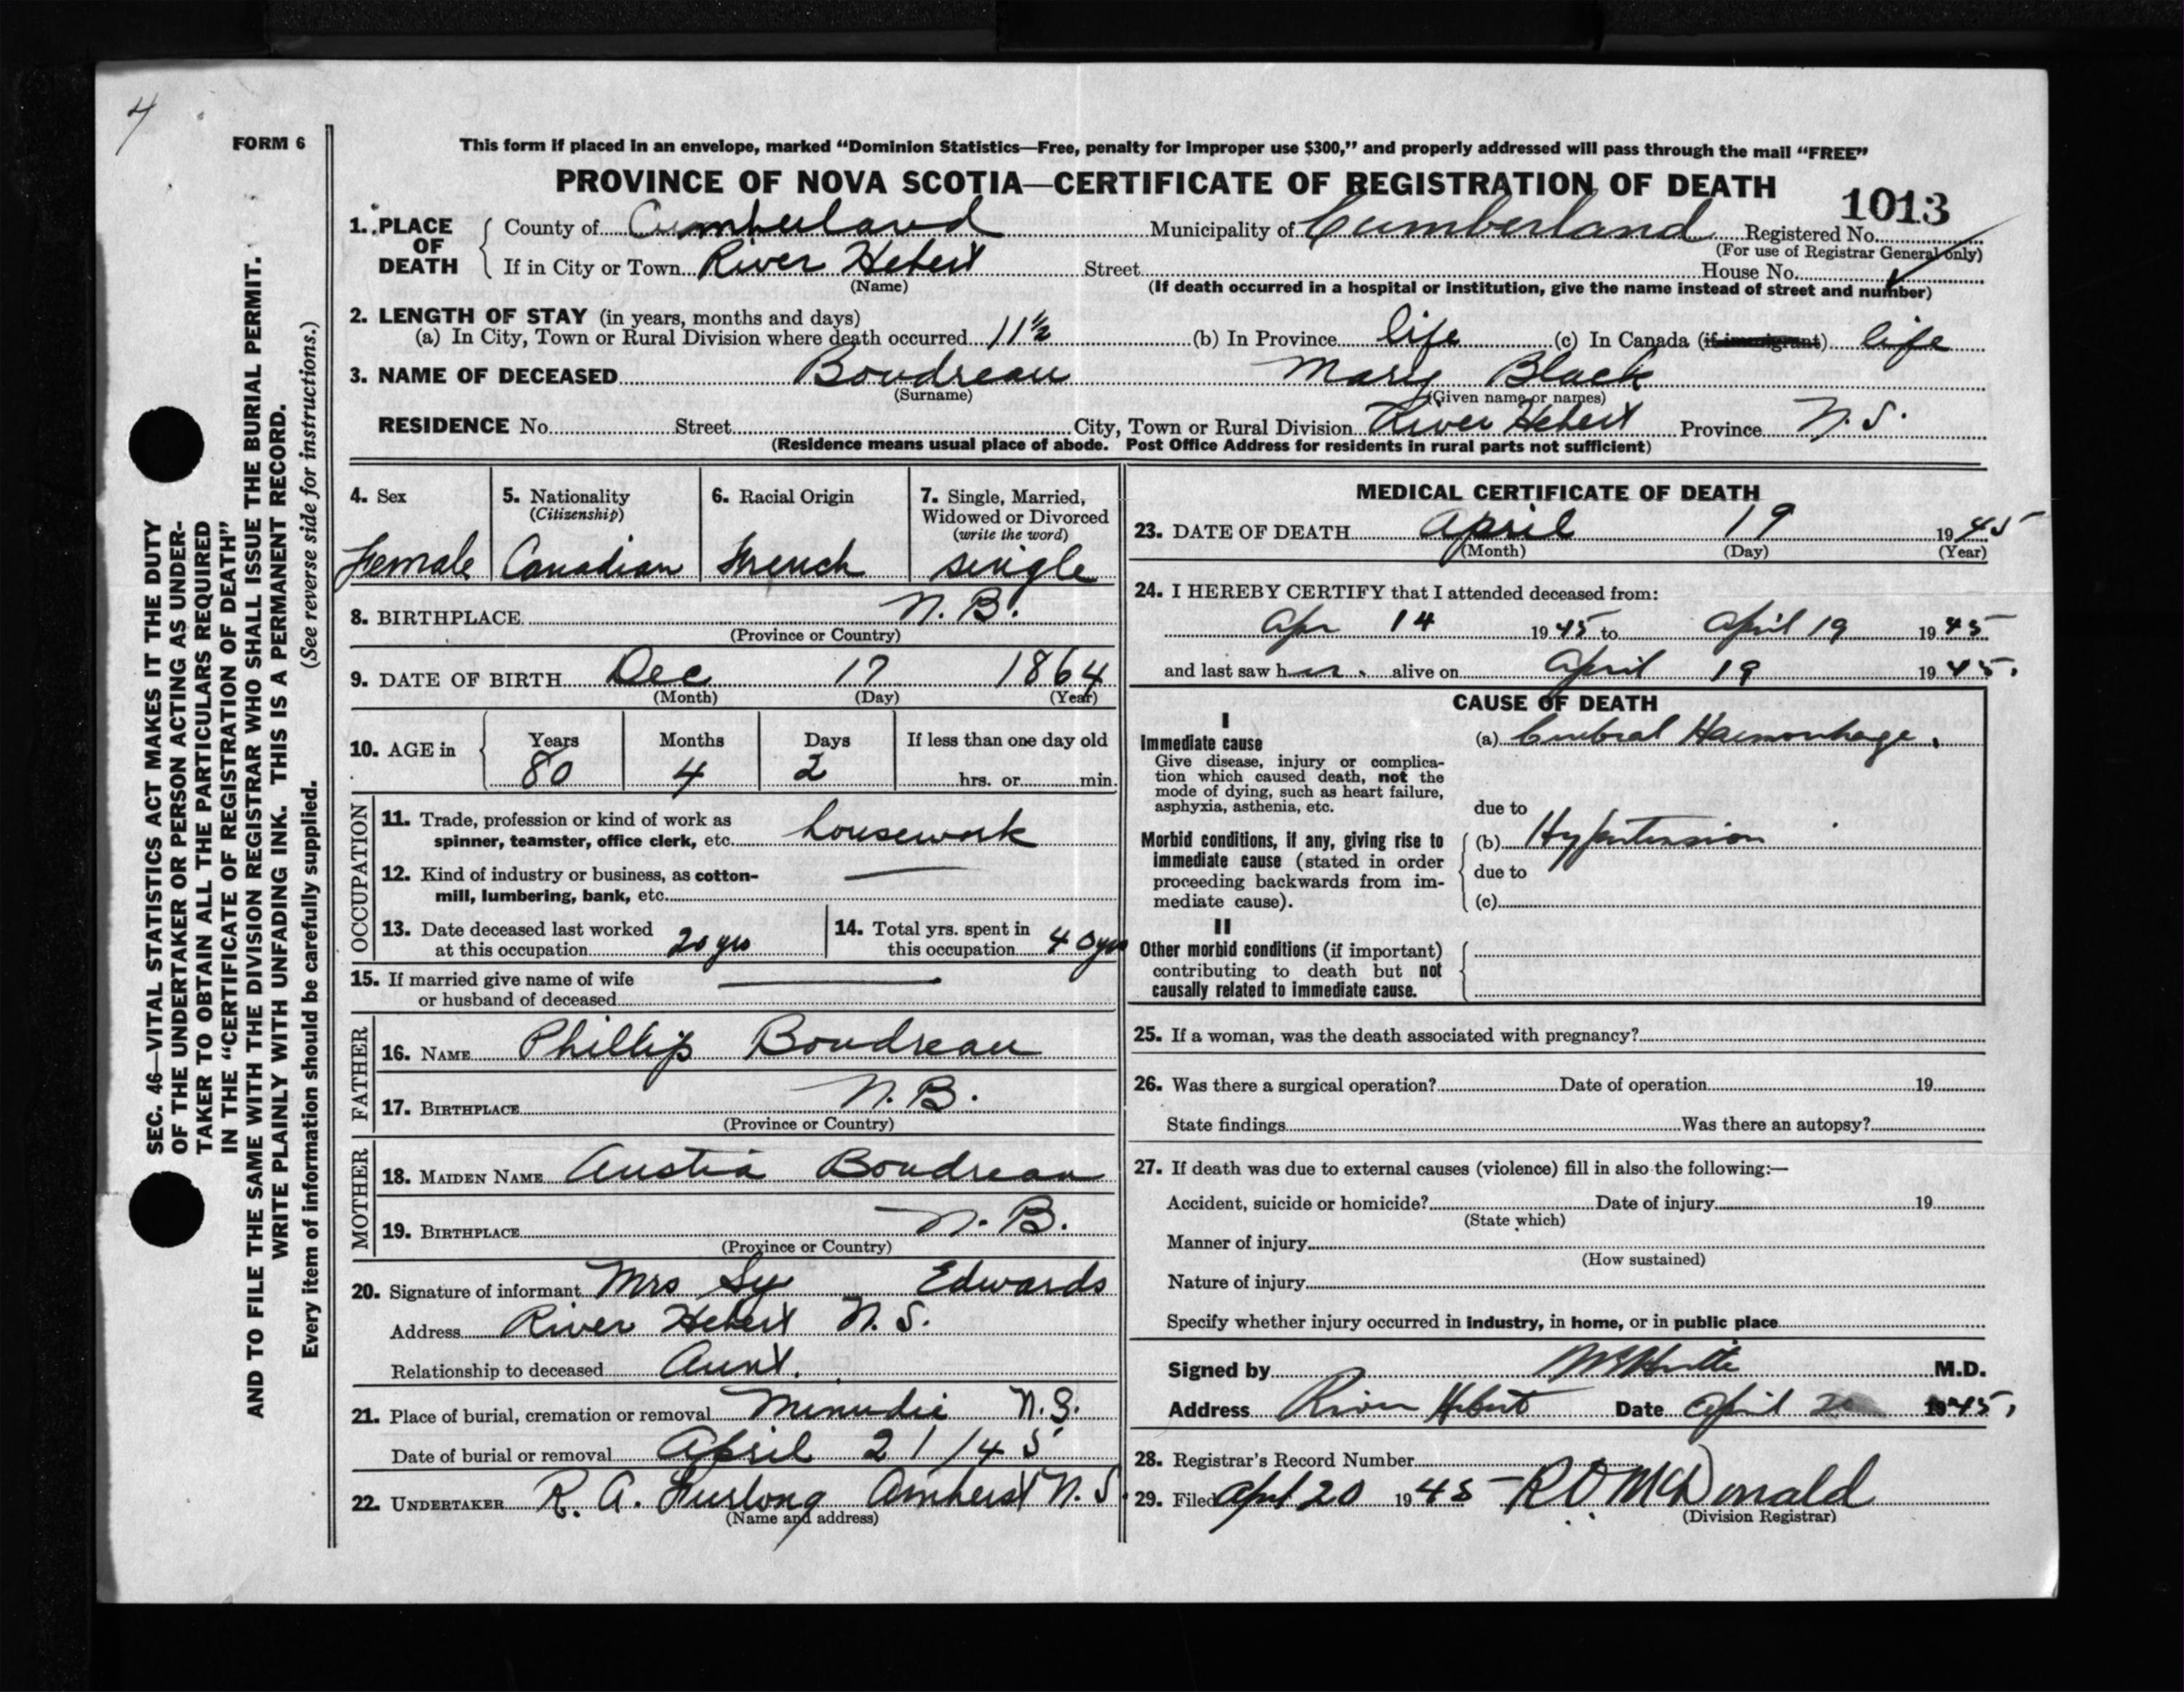 4
FORM 6
SEC. 46—VITAL STATISTICS ACT MAKES IT THE DUTY
OF THE UNDERTAKER OR PERSON ACTING AS UNDER-
TAKER TO OBTAIN ALL THE PARTICULARS REQUIRED
IN THE "CERTIFICATE OF REGISTRATION OF DEATH"
AND TO FILE THE SAME WITH THE DIVISION REGISTRAR WHO SHALL ISSUE THE BURIAL PERMIT.
WRITE PLAINLY WITH UNFADING INK. THIS IS A PERMANENT RECORD.
Every item of information should be carefully supplied. (See reverse side for instructions.)
This form if placed in an envelope, marked "Dominion Statistics—Free, penalty for improper use $300," and properly addressed will pass through the mail "FREE"
PROVINCE OF NOVA SCOTIA—CERTIFICATE OF REGISTRATION OF DEATH
1013
1. PLACE OF DEATH County of Cumberland Municipality of Cumberland Registered No.
(For use of Registrar General only)
If in City or Town River Hebert Street House No.
(Name) (If death occurred in a hospital or institution, give the name instead of street and number)
2. LENGTH OF STAY (in years, months and days)
(a) In City, Town or Rural Division where death occurred 11½ (b) In Province life (c) In Canada (if immigrant) life
3. NAME OF DECEASED Boudreau Mary Black
(Surname) (Given name or names)
RESIDENCE No. Street City, Town or Rural Division River Hebert Province N.S.
(Residence means usual place of abode. Post Office Address for residents in rural parts not sufficient)
4. Sex
Female
5. Nationality
(Citizenship)
Canadian
6. Racial Origin
French
7. Single, Married,
Widowed or Divorced
(write the word)
single
8. BIRTHPLACE N.B.
(Province or Country)
9. DATE OF BIRTH Dec 17 1864
(Month) (Day) (Year)
10. AGE in Years Months Days If less than one day old
80 4 2 hrs. or min.
OCCUPATION
11. Trade, profession or kind of work as
spinner, teamster, office clerk, etc. housework
12. Kind of industry or business, as cotton-
mill, lumbering, bank, etc.
13. Date deceased last worked
at this occupation 20 yrs
14. Total yrs. spent in
this occupation 40 yrs
15. If married give name of wife
or husband of deceased
FATHER
16. NAME Phillip Boudreau
17. BIRTHPLACE N.B.
(Province or Country)
MOTHER
18. MAIDEN NAME Austia Boudreau
19. BIRTHPLACE N.B.
(Province or Country)
20. Signature of informant Mrs Sy Edwards
Address River Hebert N.S.
Relationship to deceased Aunt.
21. Place of burial, cremation or removal Minudie N.S.
Date of burial or removal April 21/45
22. UNDERTAKER R. A. Furlong Amherst N.S.
(Name and address)
MEDICAL CERTIFICATE OF DEATH
23. DATE OF DEATH April 19 1945
(Month) (Day) (Year)
24. I HEREBY CERTIFY that I attended deceased from:
Apr 14 1945 to April 19 1945
and last saw her alive on April 19 1945.
CAUSE OF DEATH
I
Immediate cause
Give disease, injury or complica-
tion which caused death, not the
mode of dying, such as heart failure,
asphyxia, asthenia, etc.
(a) Cerebral Haemorrhage.
due to
Morbid conditions, if any, giving rise to
immediate cause (stated in order
proceeding backwards from im-
mediate cause).
(b) Hypertension
due to
(c)
II
Other morbid conditions (if important)
contributing to death but not
causally related to immediate cause.
25. If a woman, was the death associated with pregnancy?
26. Was there a surgical operation? Date of operation 19
State findings Was there an autopsy?
27. If death was due to external causes (violence) fill in also the following:—
Accident, suicide or homicide? Date of injury 19
(State which)
Manner of injury
(How sustained)
Nature of injury
Specify whether injury occurred in industry, in home, or in public place
Signed by M.D.
Address River Hebert Date April 20 1945.
28. Registrar's Record Number
29. Filed April 20 1945 R D McDonald
(Division Registrar)